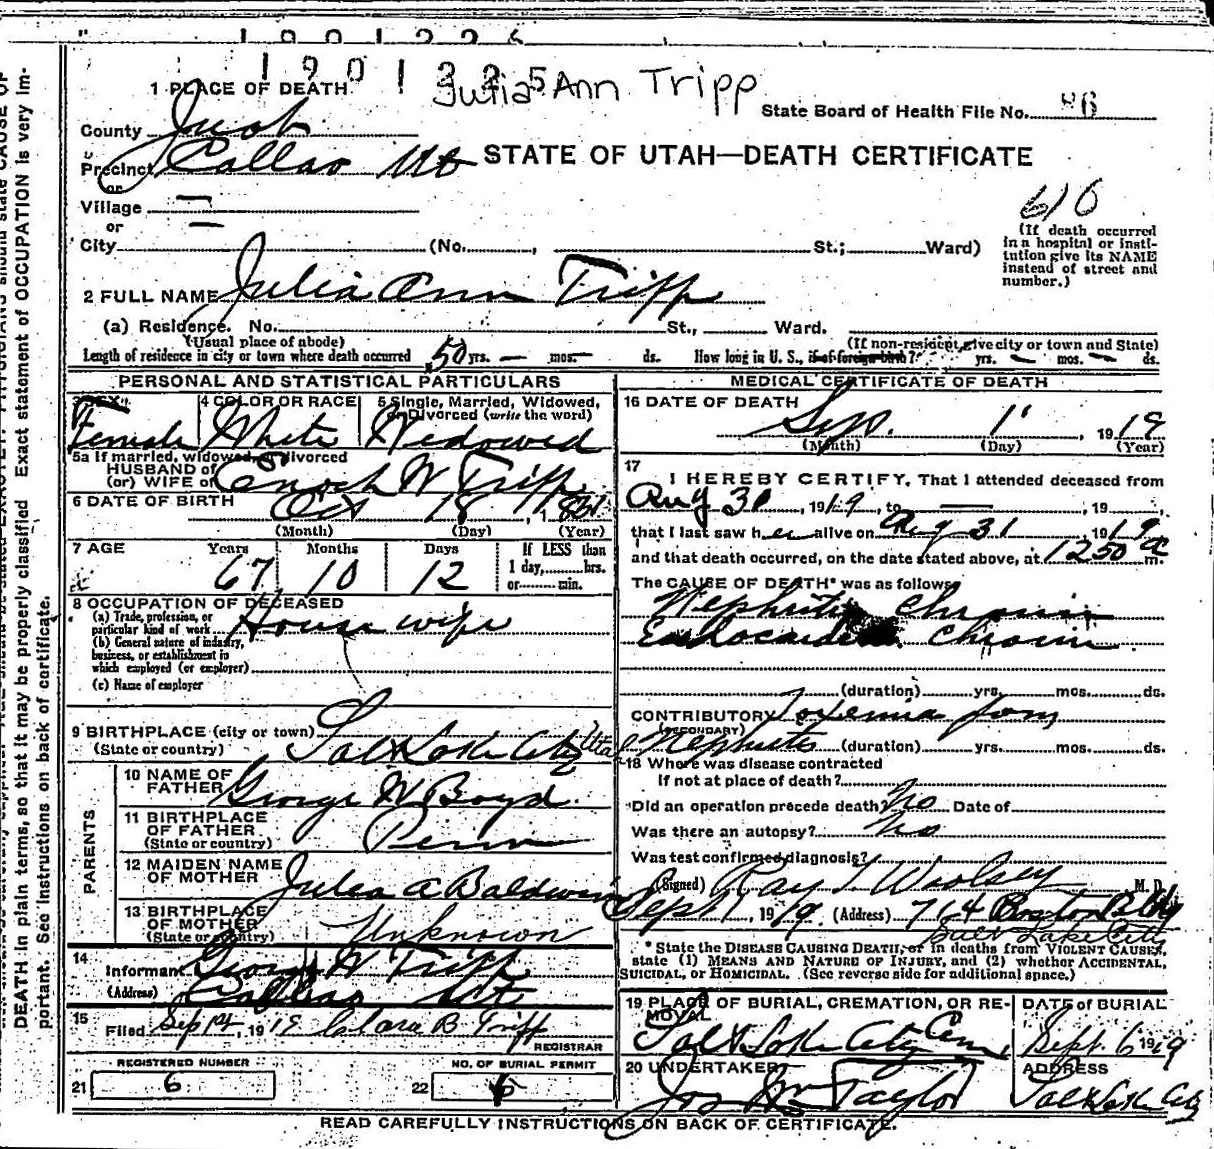 1901225
Julia Ann Tripp
1 PLACE OF DEATH
State Board of Health File No. 86
County Juab
Precinct Callao Ut
STATE OF UTAH—DEATH CERTIFICATE
or
Village —
610
or —
City (No. , St.; Ward)
(If death occurred in a hospital or insti-
tution give its NAME
instead of street and
number.)
2 FULL NAME Julia Ann Tripp
(a) Residence. No. St., Ward.
(Usual place of abode) (If non-resident give city or town and State)
Length of residence in city or town where death occurred 50 yrs. — mos. ds. How long in U. S., if of foreign birth? yrs. — mos. — ds.
PERSONAL AND STATISTICAL PARTICULARS
3 SEX 4 COLOR OR RACE 5 Single, Married, Widowed,
or Divorced (write the word)
Female White Widowed
5a If married, widowed, or divorced
HUSBAND of
(or) WIFE of Enoch W Tripp
6 DATE OF BIRTH Oct 18, 1851
(Month) (Day) (Year)
7 AGE Years Months Days If LESS than
1 day, hrs.
or min.
67 10 12
8 OCCUPATION OF DECEASED
(a) Trade, profession, or
particular kind of work House wife
(b) General nature of industry,
business, or establishment in
which employed (or employer)
(c) Name of employer
9 BIRTHPLACE (city or town)
(State or country) Salt Lake City Utah
PARENTS
10 NAME OF
FATHER George W Boyd
11 BIRTHPLACE
OF FATHER
(State or country) Penn
12 MAIDEN NAME
OF MOTHER Julia A Baldwin
13 BIRTHPLACE
OF MOTHER
(State or country) Unknown
14
Informant George W Tripp
(Address) Callao Ut
15
Filed Sep 1st, 1919 Clara B Tripp
REGISTRAR
REGISTERED NUMBER NO. OF BURIAL PERMIT
21 6 22 6
MEDICAL CERTIFICATE OF DEATH
16 DATE OF DEATH
Sep. 1, 1919
(Month) (Day) (Year)
17
I HEREBY CERTIFY, That I attended deceased from
Aug 31, 1919, to —, 19
that I last saw her alive on Aug 31 1919
and that death occurred, on the date stated above, at 1250 a m.
The CAUSE OF DEATH* was as follows:
Nephritis Chronic
Endocarditis Chronic
(duration) yrs. mos. ds.
CONTRIBUTORY Toxemia from
(SECONDARY)
Nephritis (duration) yrs. mos. ds.
18 Where was disease contracted
If not at place of death?
Did an operation precede death? No Date of
Was there an autopsy? No
Was test confirmed diagnosis?
(Signed) Ray T Woolsey M. D.
Sept 1, 1919 (Address) 714 Boston Bldg
Salt Lake City
* State the DISEASE CAUSING DEATH, or in deaths from VIOLENT CAUSES,
state (1) MEANS AND NATURE OF INJURY, and (2) whether ACCIDENTAL,
SUICIDAL, or HOMICIDAL. (See reverse side for additional space.)
19 PLACE OF BURIAL, CREMATION, OR RE-
MOVAL DATE of BURIAL
Salt Lake City Cem, Sept. 6 1919
20 UNDERTAKER ADDRESS
Jos Wm Taylor Salt Lake City
READ CAREFULLY INSTRUCTIONS ON BACK OF CERTIFICATE.
DEATH in plain terms, so that it may be properly classified. Exact statement of OCCUPATION is very im-
portant. See instructions on back of certificate.